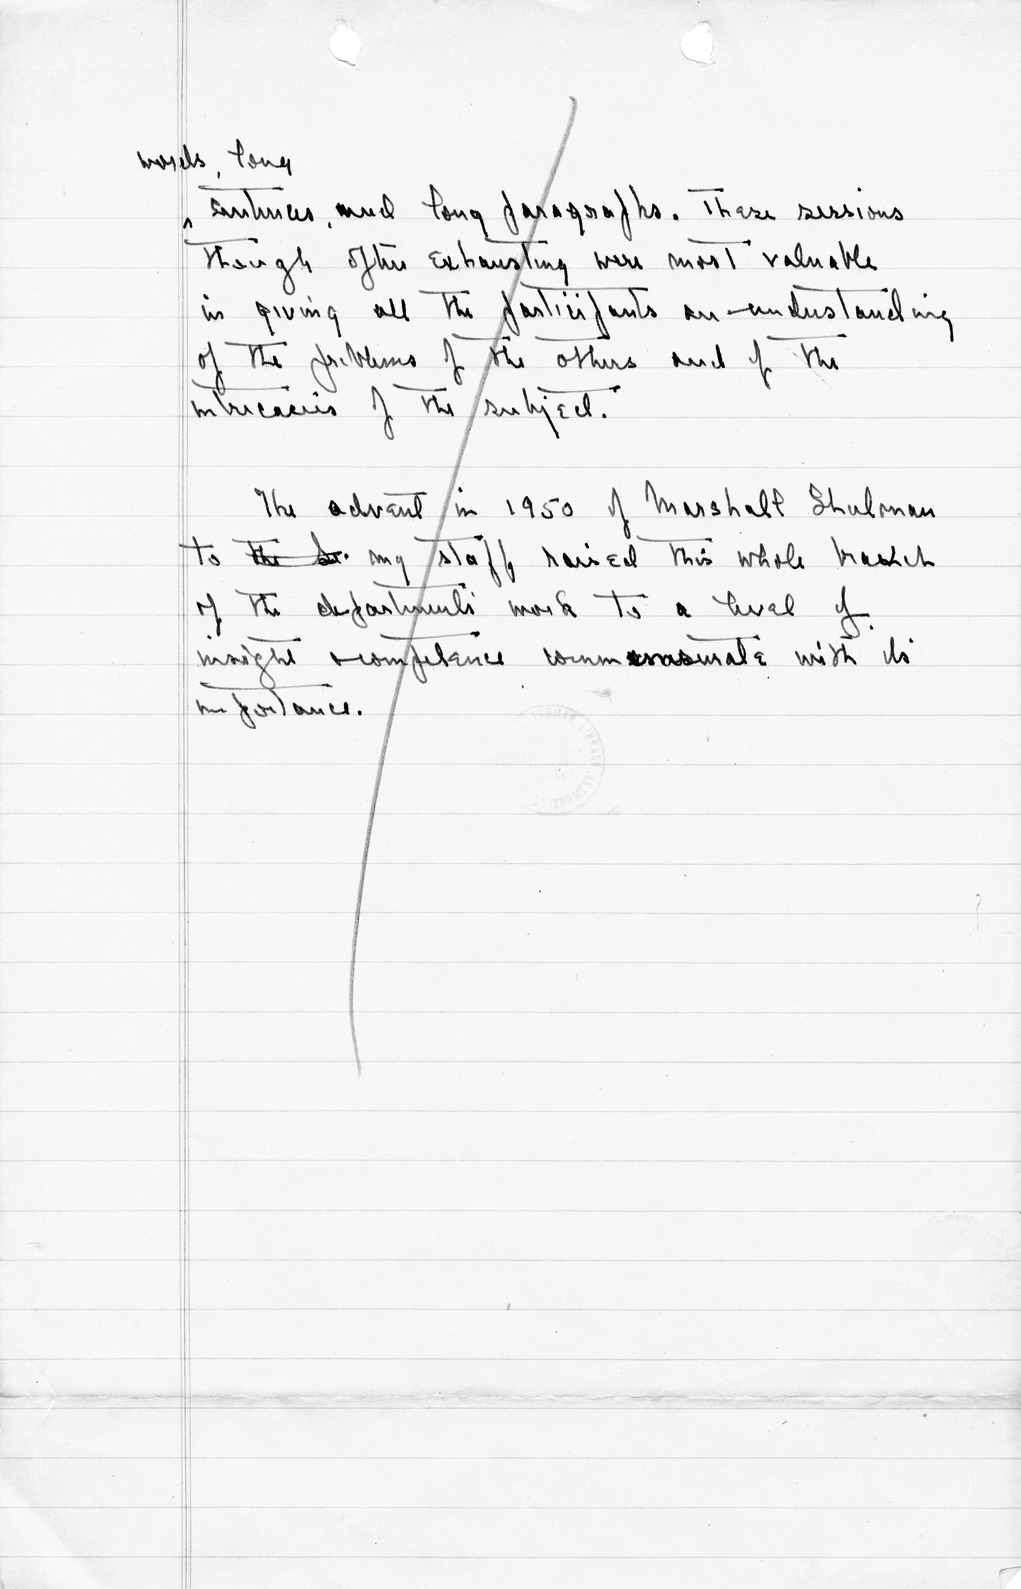 words, long
sentences, and long paragraphs. These sessions
though often exhausting were most valuable
in giving all the participants an understanding
of the problems of the others and of the
intricacies of the subject.
The advent in 1950 of Marshall Shulman
to the my staff raised this whole branch
of the department's work to a level of
insight & competence commensurate with its
importance.
TRUMAN LIBRARY
GOVERNMENT